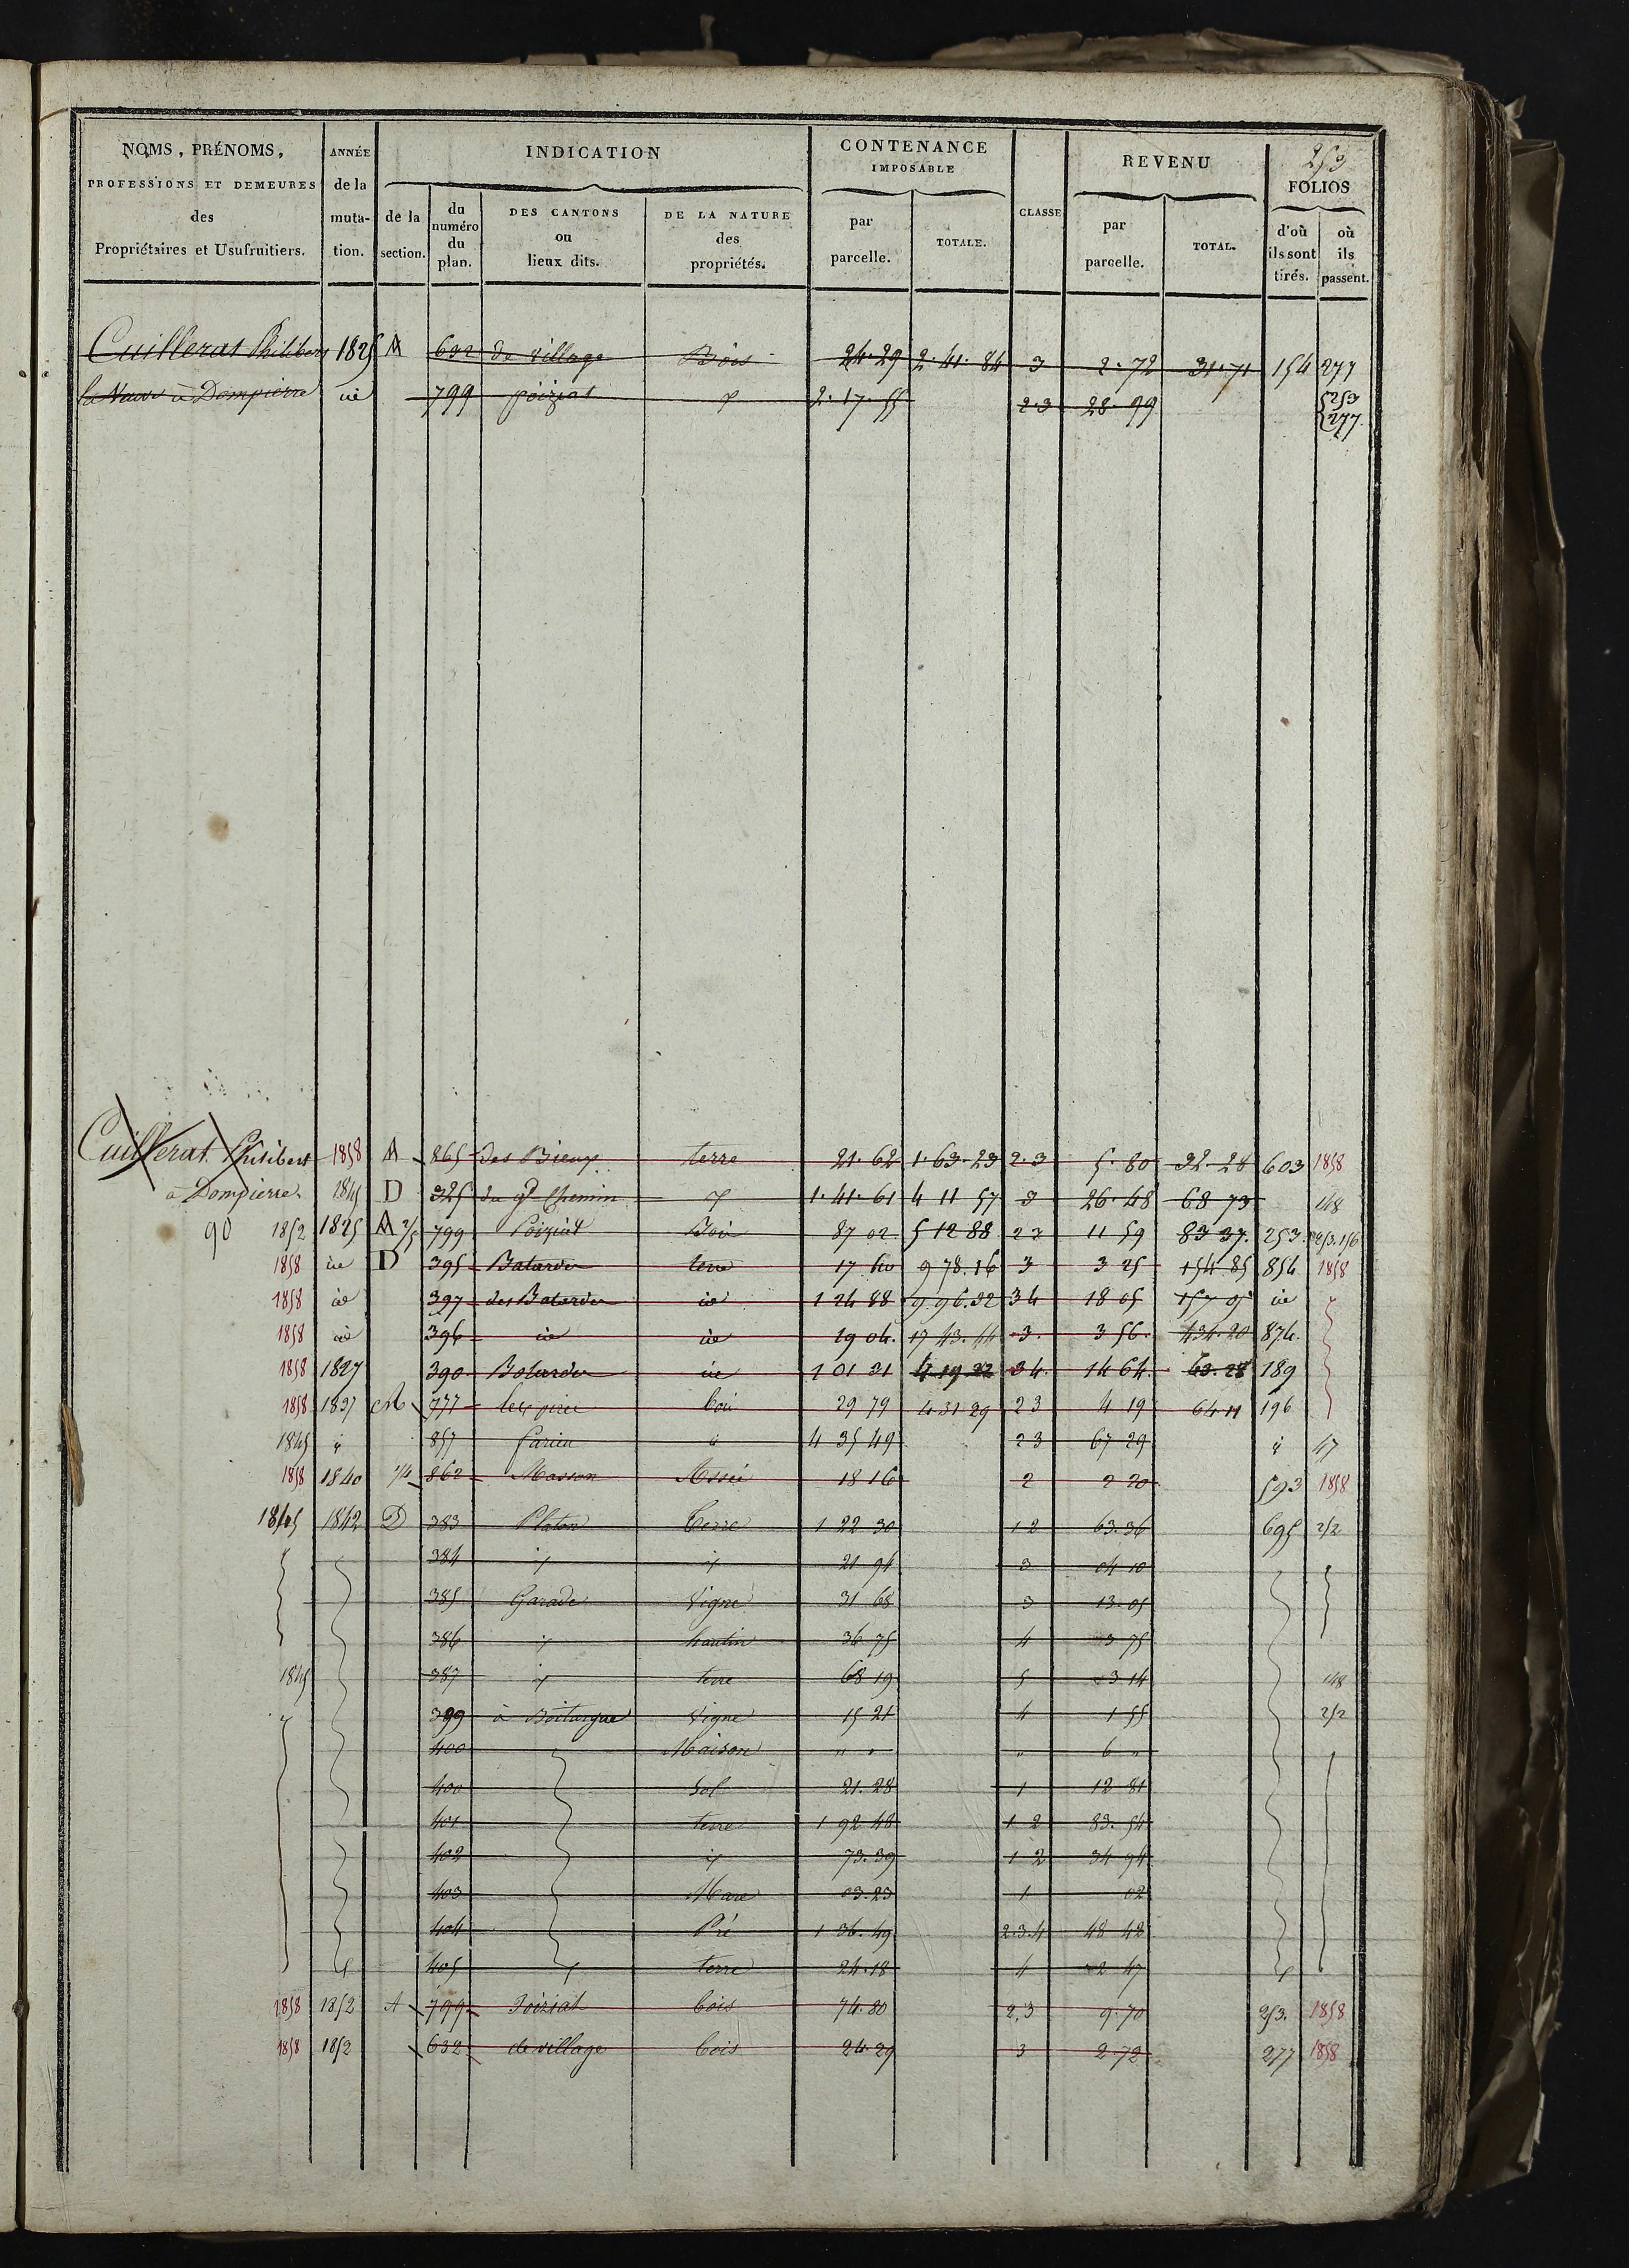 253
NOMS, PRÉNOMS, PROFESSIONS ET DEMEURES des Propriétaires et Usufruitiers. ANNÉE de la mutation. INDICATION de la section. du numéro du plan. DES CANTONS ou lieux dits. DE LA NATURE des propriétés. CONTENANCE IMPOSABLE par parcelle. TOTALE. CLASSE REVENU par parcelle. TOTAL. FOLIOS d'où ils sont tirés. où ils passent.
Cuillerat Philibert 1825 A 632 de village Bois 24.29 2.41.84 3 2.72 31.71 154 277
à Dompierre id 799 poiziat 2.17.55 2.3 28.99 253 277
Cuillerat Philibert 1858 A 865 des Bieux terre 21.62 1.63.23 2.3 5.80 32.28 603 1858
à Dompierre 1845 D 325 du gd Chemin 1.41.61 4 11 57 3 26.48 68 73 148
90 1852 1825 A 799 Poiziat Bois 87 02 5 12 88 23 11 59 83 37. 253. 253.156
1858 id D 395 Batardes terre 17 40 9 78.16 3 3 25 154 85 854 1858
1858 id 397 des Batardes id 1 24 88 9 96.32 34 18 05 157 05 id
1858 id 396 id id 19 04. 17 43.44 3. 3 56. 434.20 874.
1858 1827 390 Batardes id 1 01 31 4 19 22 34. 14 64. 63.28 189
1858 1837 777 bois 29 79 4 31 29 23 4 19 64 11 196
1845 857 4 35 49 23 67 29 47
1858 1840 862 Masson 18 16 2 2 20 593 1858
1845 1842 D 383 Platon Terre 1 22 30 1 2 63.36 695 252
384 21 94 3 04 10
385 Garade Vigne 31 68 3 13.05
386 hautin 36 75 4 3 75
1845 387 terre 68 19 5 3 14 148
399 à Vigne 15 21 4 1 55 252
400 Maison " " " 6 "
400 Sol 21.28 1 12 81
401 terre 1 92 48 1 2 83.54
402 73.39 1 2 34 94
403 Mare 03.23 1 02
404 Pré 1 36.49 2.3.4 48 42
405 terre 24.18 4 2 47
1858 1852 A 799 Poiziat bois 74.80 2,3 9.70 253. 1858
1858 1852 632 de village bois 24.29 3 2.72 277 1858